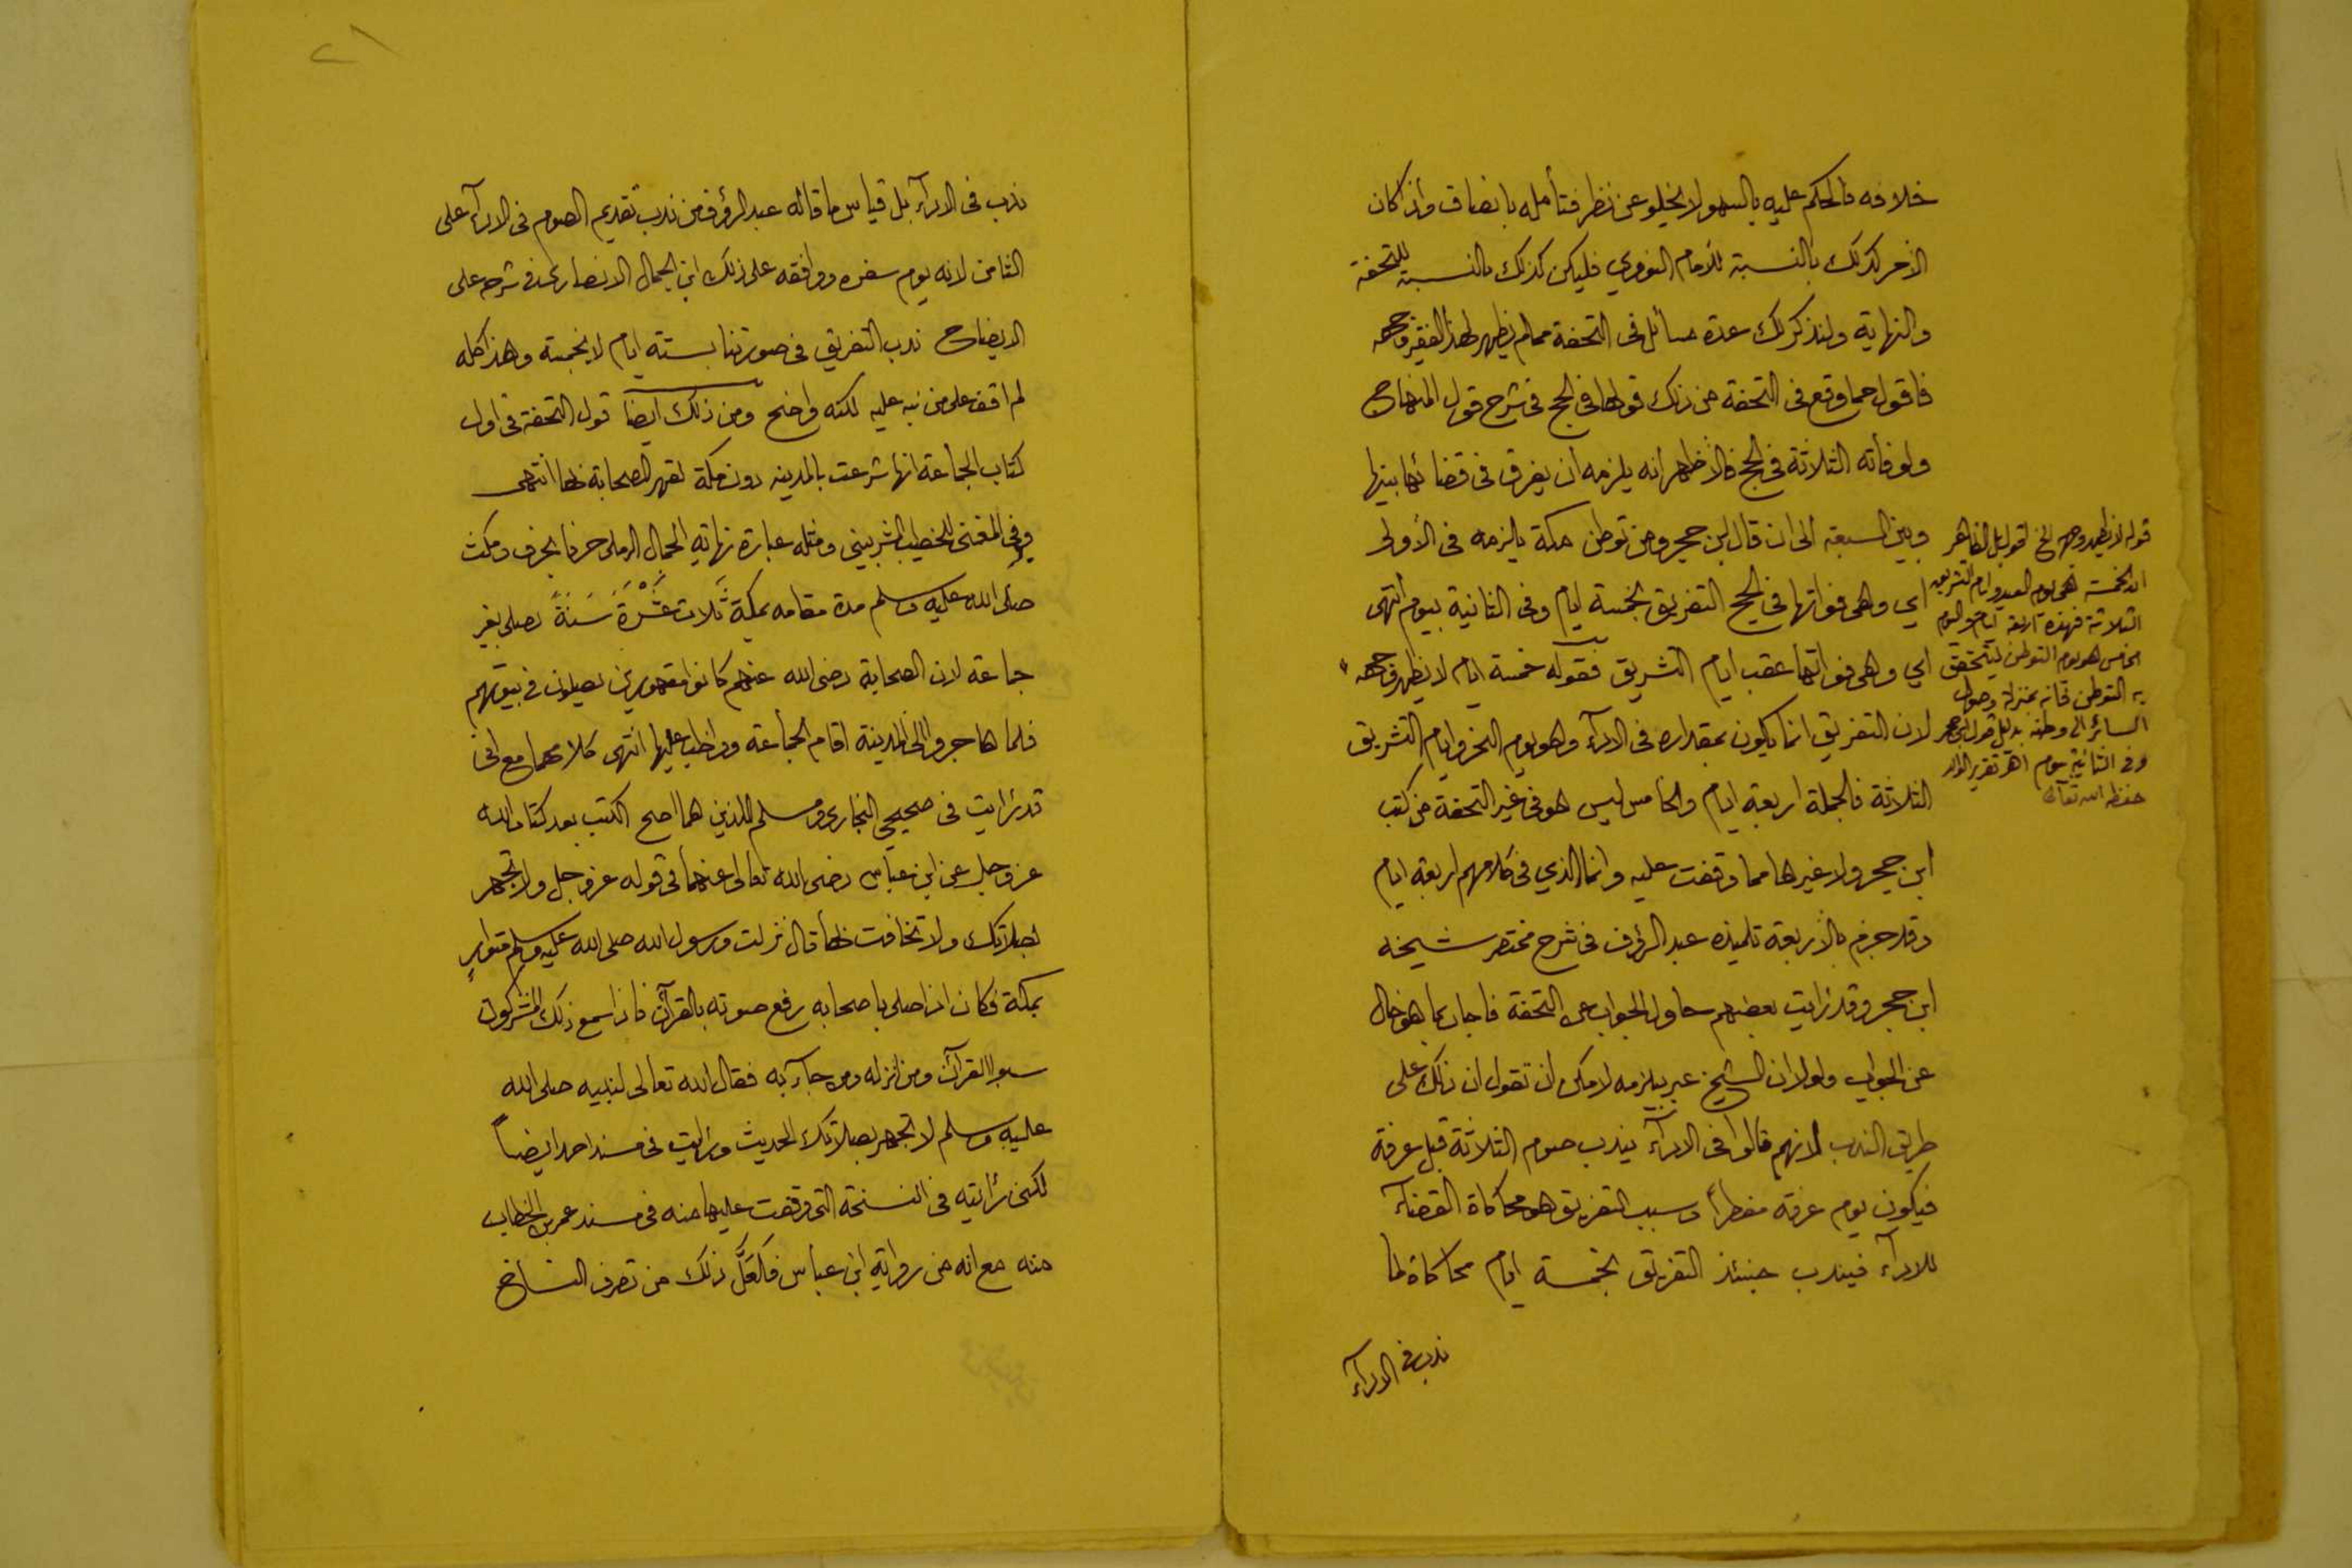 خلافه فالحكم عليه بالسهو لا يخلو عن نظر فتأمله بانصاف واذا كان
الأمر كذلك بالنسبة للأمام النووي فليكن كذلك بالنسبة للتحفة
والنهاية ولنذكر لك عدة مسائل في التحفة مما لم يظهر لهذا الفقير وجهه
فاقول مما وقع في التحفة من ذلك قولها في الحج في شرح قول المنهاج
ولو فاته الثلاثة في الحج فالأظهر انه يلزمه ان يفرق في قضائها بينها
وبين السبعة الى ان قال ابن حجر ومن توطن مكة يلزمه في الأولى
اي وهي فواتها في الحج التفريق بخمسة ايام وفي الثانية بيوم انتهى
اي وهي فواتها عقب ايام التشريق فقوله خمسة ايام لا يظهر وجهه
لان التفريق انما يكون بمقداره في الادآء وهو يوم النحر وايام التشريق
الثلاثة فالجملة اربعة ايام والخامس ليس هو في غير التحفة من كتب
ابن حجر ولا غيرها مما وقفت عليه وانما الذي في كلامهم اربعة ايام
وقد جزم بالأربعة تلميذه عبد الرؤف في شرح مختصر شيخه
ابن حجر وقد رأيت بعضهم حاول الجواب عن التحفة فاجاب بما هو خال
عن الجواب ولولا ان الشيخ عبر بيلزمه لامكن ان تقول ان ذلك على
طريق الندب لانهم قالوا في الادآء يندب صوم الثلاثة قبل عرفة
فيكون يوم عرفة مفطراً وسبب التفريق هو محاكاة القضآء
للادآء فيندب حينئذ التفريق بخمسة ايام محاكاة لما
ندب في الادآء
قوله لا يظهر وجهه الخ اقول بل الظاهر
ان الخمسة هي يوم العيد وايام التشريق
الثلاثة فهذه اربعة ايام واليوم
الخامس هو يوم التوطن ليتحقق
به التوطن فانه بمنزلة وصول
السائر الى وطنه بدليل قول ابن حجر
وفي الثانية بيوم اهـ تقرير الوالد
حفظه الله تعالى
٢١
ندب في الادآء بل قياس ما قاله عبد الرؤف من ندب تقديم الصوم في الادآء على
الثامن لانه يوم سفره ووافقه على ذلك ابن الجمال الانصاري في شرحه على
الايضاح ندب التفريق في صورتنا بستة ايام لا بخمسة وهذا كله
لم اقف على من نبه عليه لكنه واضح ومن ذلك ايضا قول التحفة في اول
كتاب الجماعة انها شرعت بالمدينه دون مكة لقهر الصحابة بها انتهى
وفي المغني للخطيب الشربيني ومثله عبارة نهاية الجمال الرملي حرفا بحرف ومكث
صلى الله عليه وسلم مدة مقامه بمكة ثَلَاثَ عَشْرَةَ سَنَةً يصلي بغير
جماعة لان الصحابة رضي الله عنهم كانوا مقهورين يصلون في بيوتهم
فلما هاجروا الى المدينة اقام الجماعة وواظب عليها انتهى كلامهما مع اني
قد رأيت في صحيحي البخاري ومسلم اللذين هما اصح الكتب بعد كتاب الله
عز وجل عن ابن عباس رضي الله تعالى عنهما في قوله عز وجل ولا تجهر
بصلاتك ولا تخافت بها قال نزلت ورسول الله صلى الله عليه وسلم متوارٍ
بمكة فكان اذا صلى باصحابه رفع صوته بالقرآن فاذا سمع ذلك المشركون
سبوا القرآن ومن انزله ومن جآء به فقال الله تعالى لنبيه صلى الله
عليه وسلم لا تجهر بصلاتك الحديث ورأيت في مسند احمد ايضاً
لكني رأيته في النسخة التي وقفت عليها منه في مسند عمر بن الخطاب
منه مع انه من رواية ابن عباس فَلَعَلَّ ذلك من تصرف النساخ